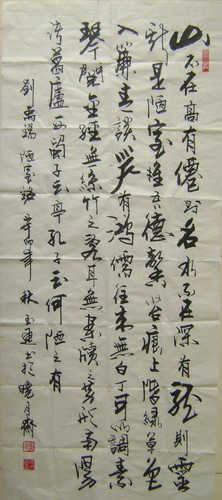 山不在高有僊則名水不在深有龍則靈
斯是陋室惟吾德馨苔痕上階綠草色
入簾青談笑有鴻儒往來無白丁可以調素
琴閱金經無絲竹之亂耳無案牘之勞形南陽
諸葛廬西蜀子云亭孔子云何陋之有
劉禹錫陋室銘辛卯年秋玉書於曉月齋